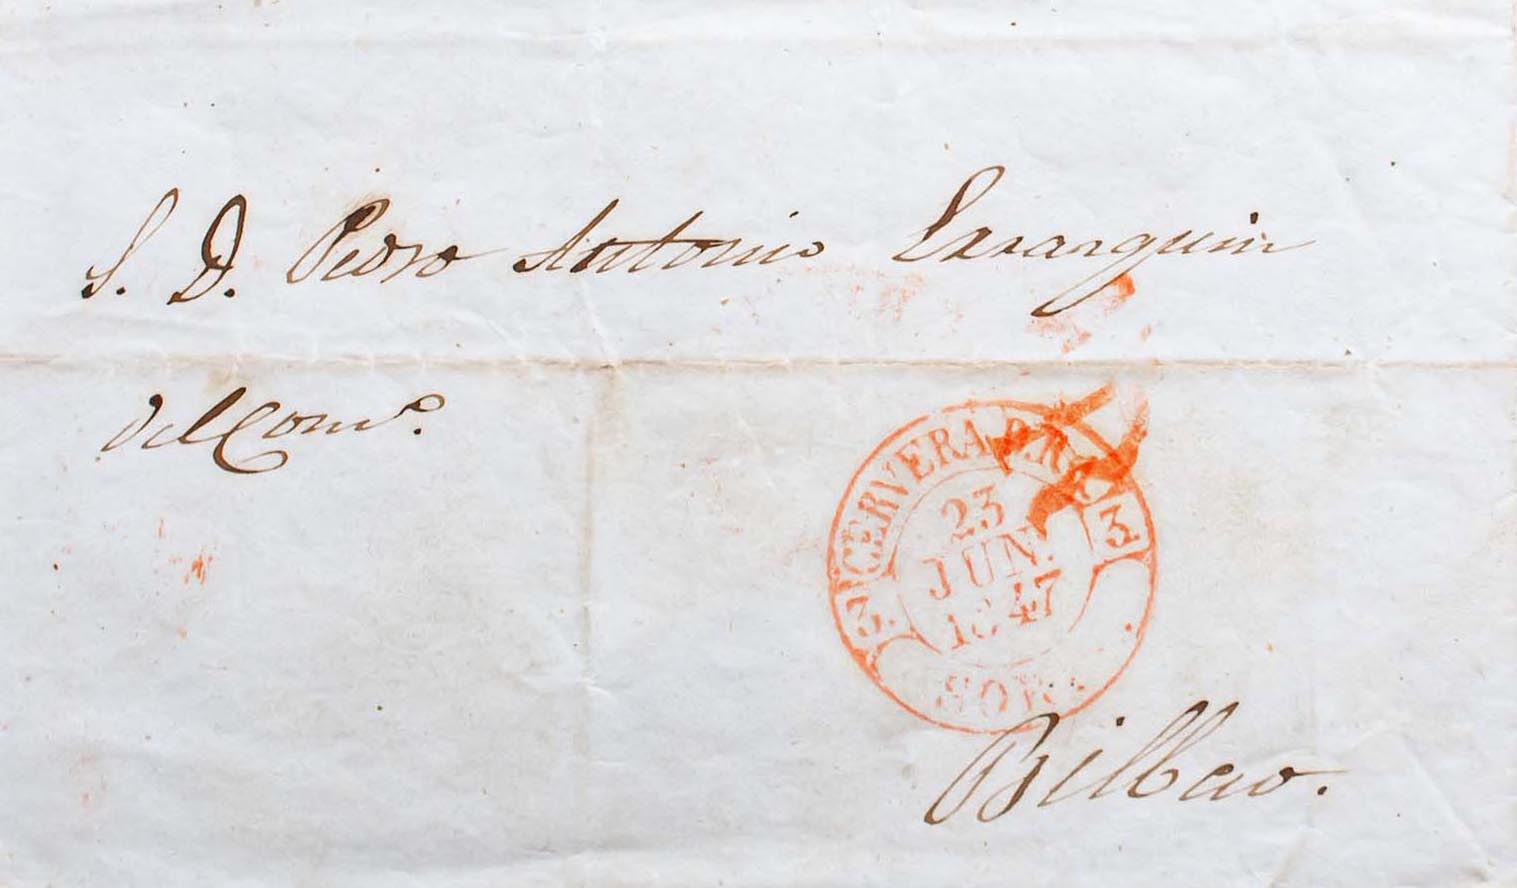 S. D. Pedro Antonio Lazarquin
del Com.º
S. P. CERVERA P. R.
3
23
JUN.
1847
SOR
Bilbao.